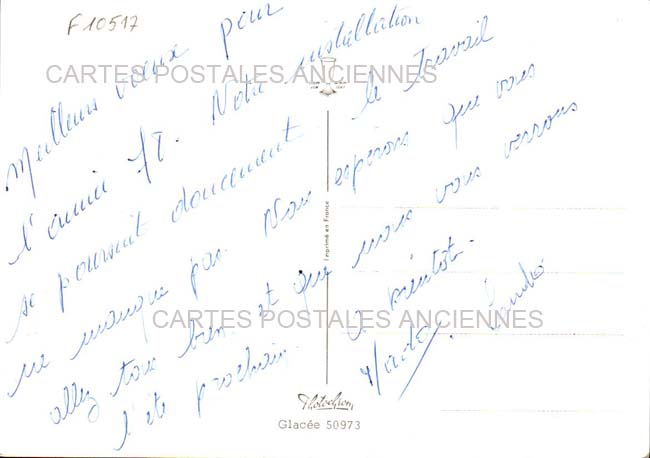 F10517
CARTES POSTALES ANCIENNES
Meilleurs vœux pour
l'année 78. Notre installation
se poursuit doucement le travail
ne manque pas. Nous espérons que vous
allez tous bien et que nous vous verrons
l'été prochain. A bientôt.
CARTES POSTALES ANCIENNES
Imprimé en France
Photochrom
Glacée 50973